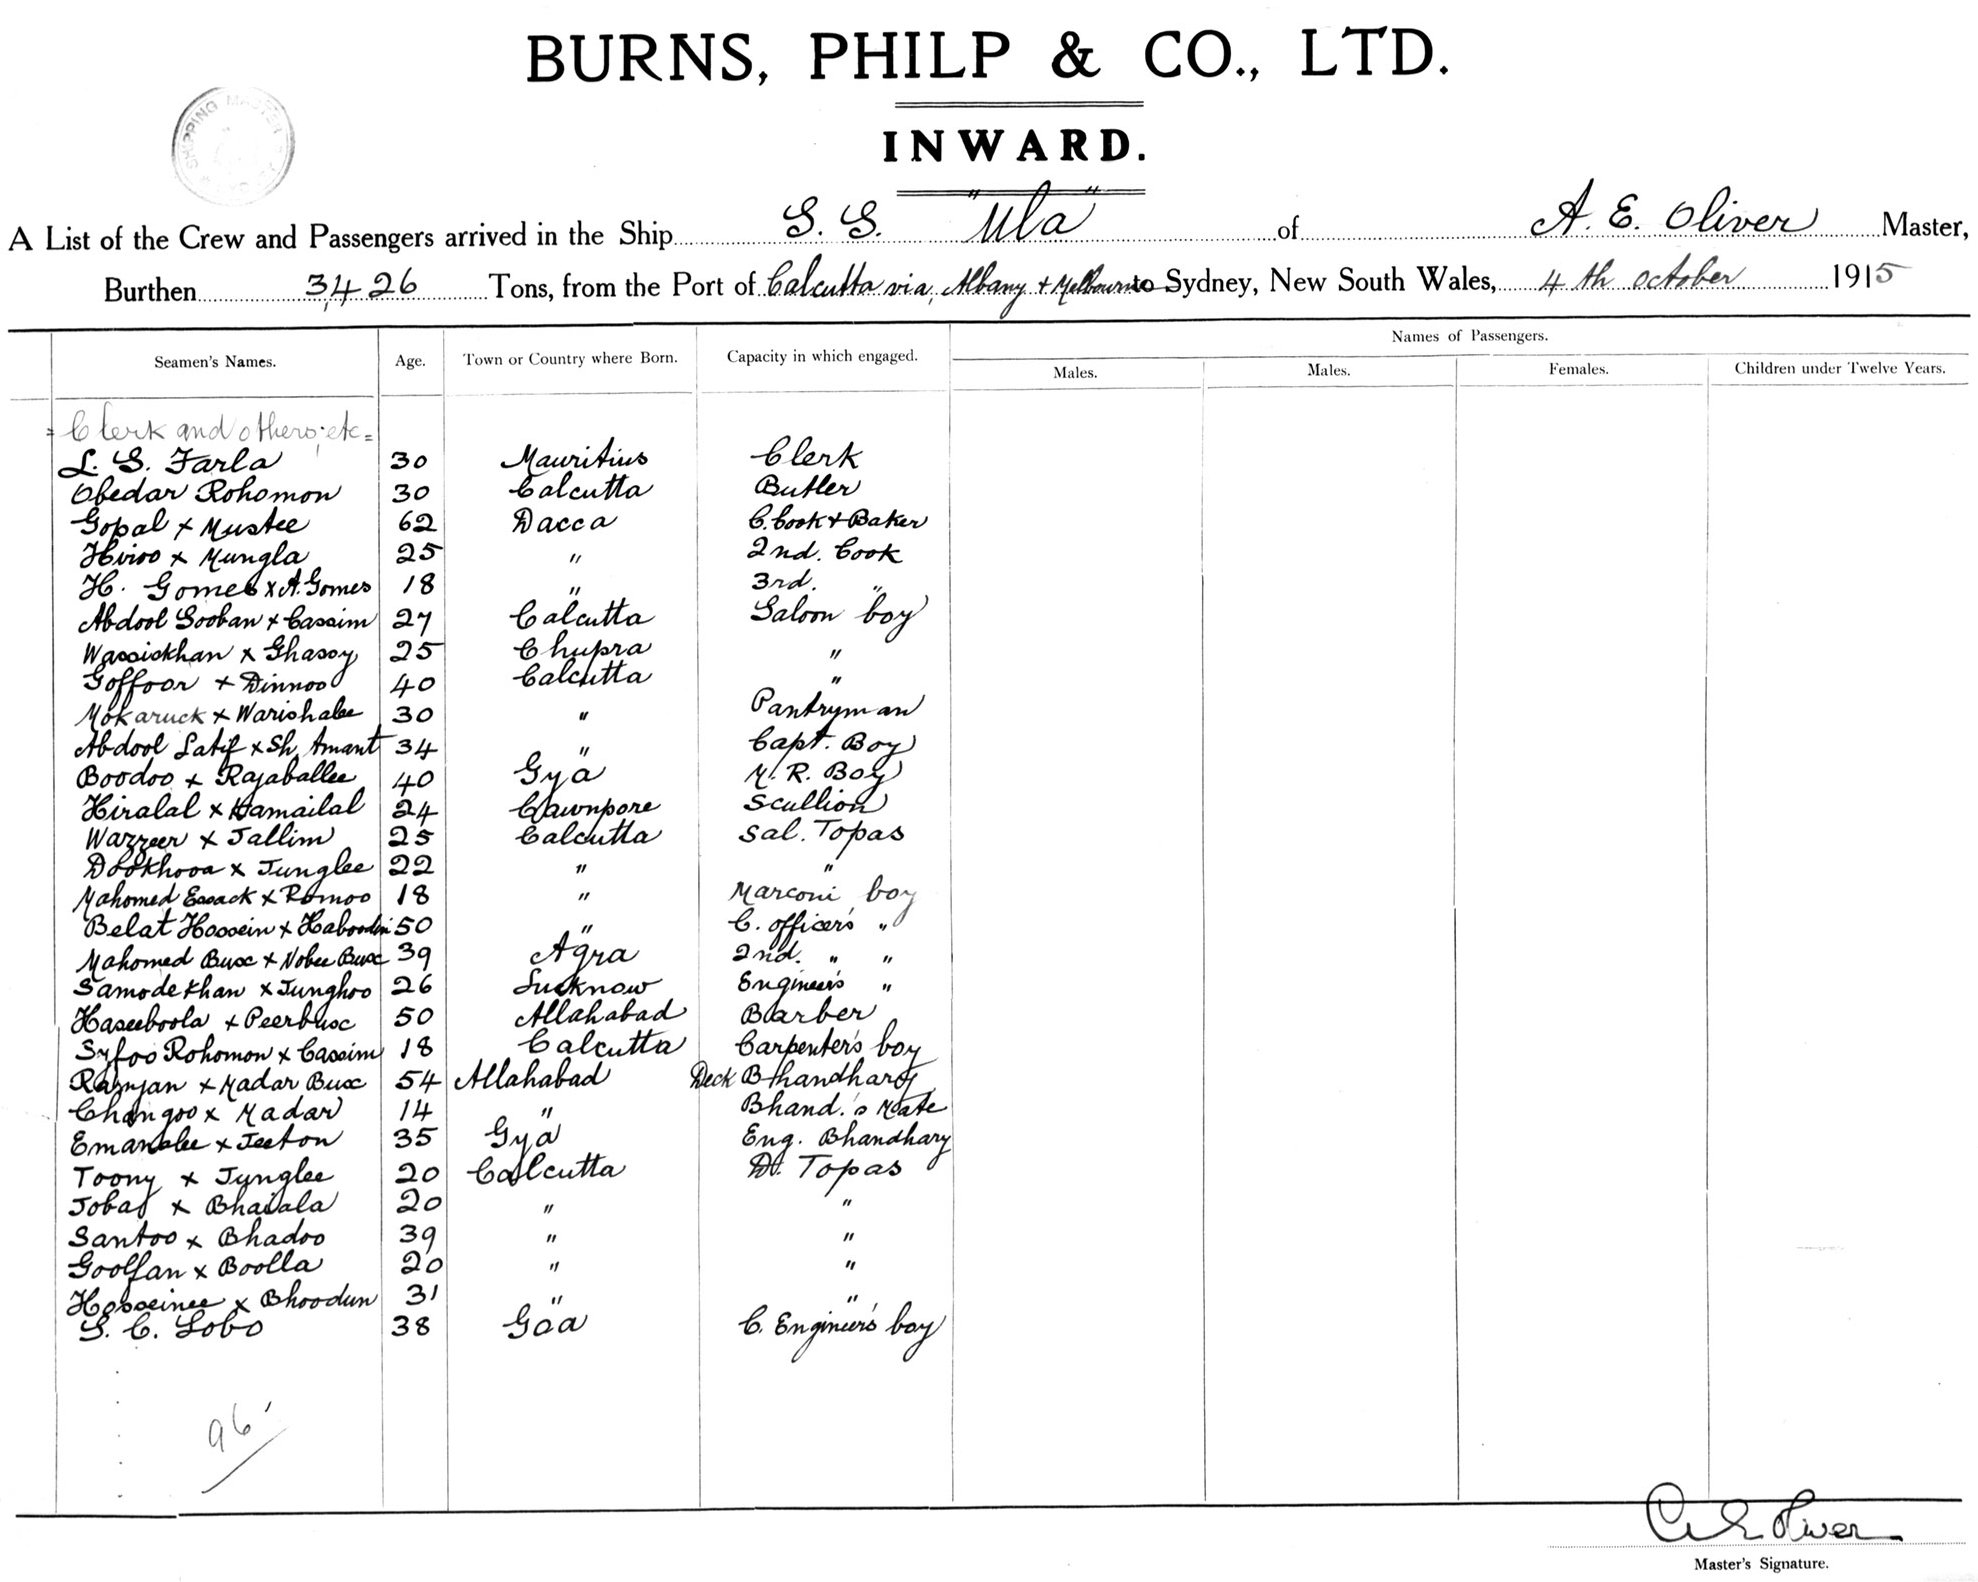 BURNS, PHILP & CO., LTD.
INWARD.
SHIPPING MASTER
A List of the Crew and Passengers arrived in the Ship S. S. "Ula" of A. E. Oliver Master,
Burthen 3,426 Tons, from the Port of Calcutta via, Albany + Melbourne to Sydney, New South Wales, 4th October 1915
Names of Passengers.
Seamen's Names. Age. Town or Country where Born. Capacity in which engaged. Males. Males. Females. Children under Twelve Years.
= Clerk and others, etc =
L. S. Farla 30 Mauritius Clerk
Obedar Rohomon 30 Calcutta Butler
Gopal x Mustee 62 Dacca C. Cook + Baker
Hiroo x Mungla 25 " 2nd. Cook
H. Gomes x A. Gomes 18 " 3rd. "
Abdool Sooban x Cassim 27 Calcutta Saloon boy
Wassickhan x Ghassy 25 Chupra "
Goffoor x Dinnoo 40 Calcutta "
Mokaruck x Warishalee 30 " Pantryman
Abdool Latif x Sh. Amant 34 " Capt. Boy
Boodoo x Rajaballee 40 Gya M. R. Boy
Hiralal x Hamailal 24 Cawnpore Scullion
Wazzeer x Jallim 25 Calcutta Sal. Topas
Dookhooa x Junglee 22 " "
Mahomed Essack x Romoo 18 " Marconi boy
Belat Hossein x Haboodin 50 " C. officer's "
Mahomed Bux x Nobee Bux 39 Agra 2nd. " "
Samodekhan x Junghoo 26 Lucknow Engineer's "
Haseeboola x Peerbux 50 Allahabad Barber
Syfoo Rohomon x Cassim 18 Calcutta Carpenter's boy
Ramjan x Madar Bux 54 Allahabad Deck Bhandhary
Changoo x Madar 14 " Bhand.'s Mate
Emanalee x Jeeton 35 Gya Eng. Bhandhary
Toony x Junglee 20 Calcutta D. Topas
Jobas x Bhaiala 20 " "
Santoo x Bhadoo 39 " "
Goolfan x Boolla 20 " "
Hosseinee x Bhoodun 31 " "
S. C. Lobo 38 Goa C. Engineer's boy
96
A E Oliver
Master's Signature.